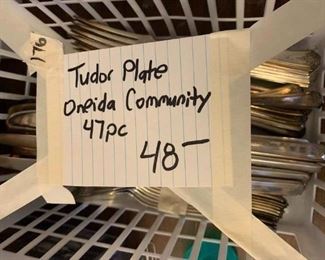 176
Tudor Plate
Oneida Community
47pc
48—